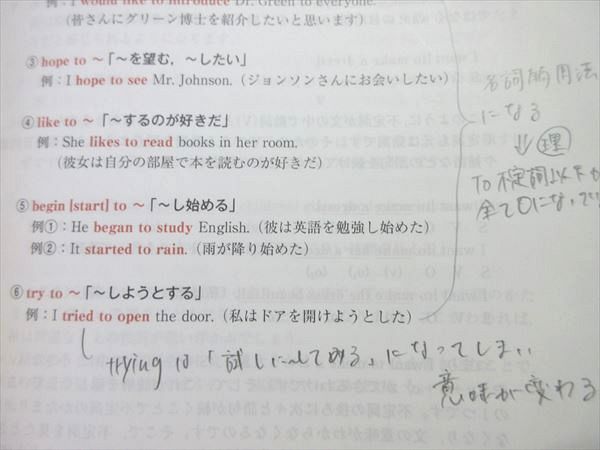 例：I would like to introduce Dr. Green to everyone.
(皆さんにグリーン博士を紹介したいと思います)
③ hope to ～「～を望む，～したい」
例：I hope to see Mr. Johnson.（ジョンソンさんにお会いしたい）
④ like to ～「～するのが好きだ」
例：She likes to read books in her room.
(彼女は自分の部屋で本を読むのが好きだ)
⑤ begin [start] to ～「～し始める」
例①：He began to study English.（彼は英語を勉強し始めた）
例②：It started to rain.（雨が降り始めた）
⑥ try to ～「～しようとする」
例：I tried to open the door.（私はドアを開けようとした）
trying は「試しに～してみる」になってしまい
意味が変わる
名詞的用法
になる
⇓ 理
to 不定詞以下が
全てOになって